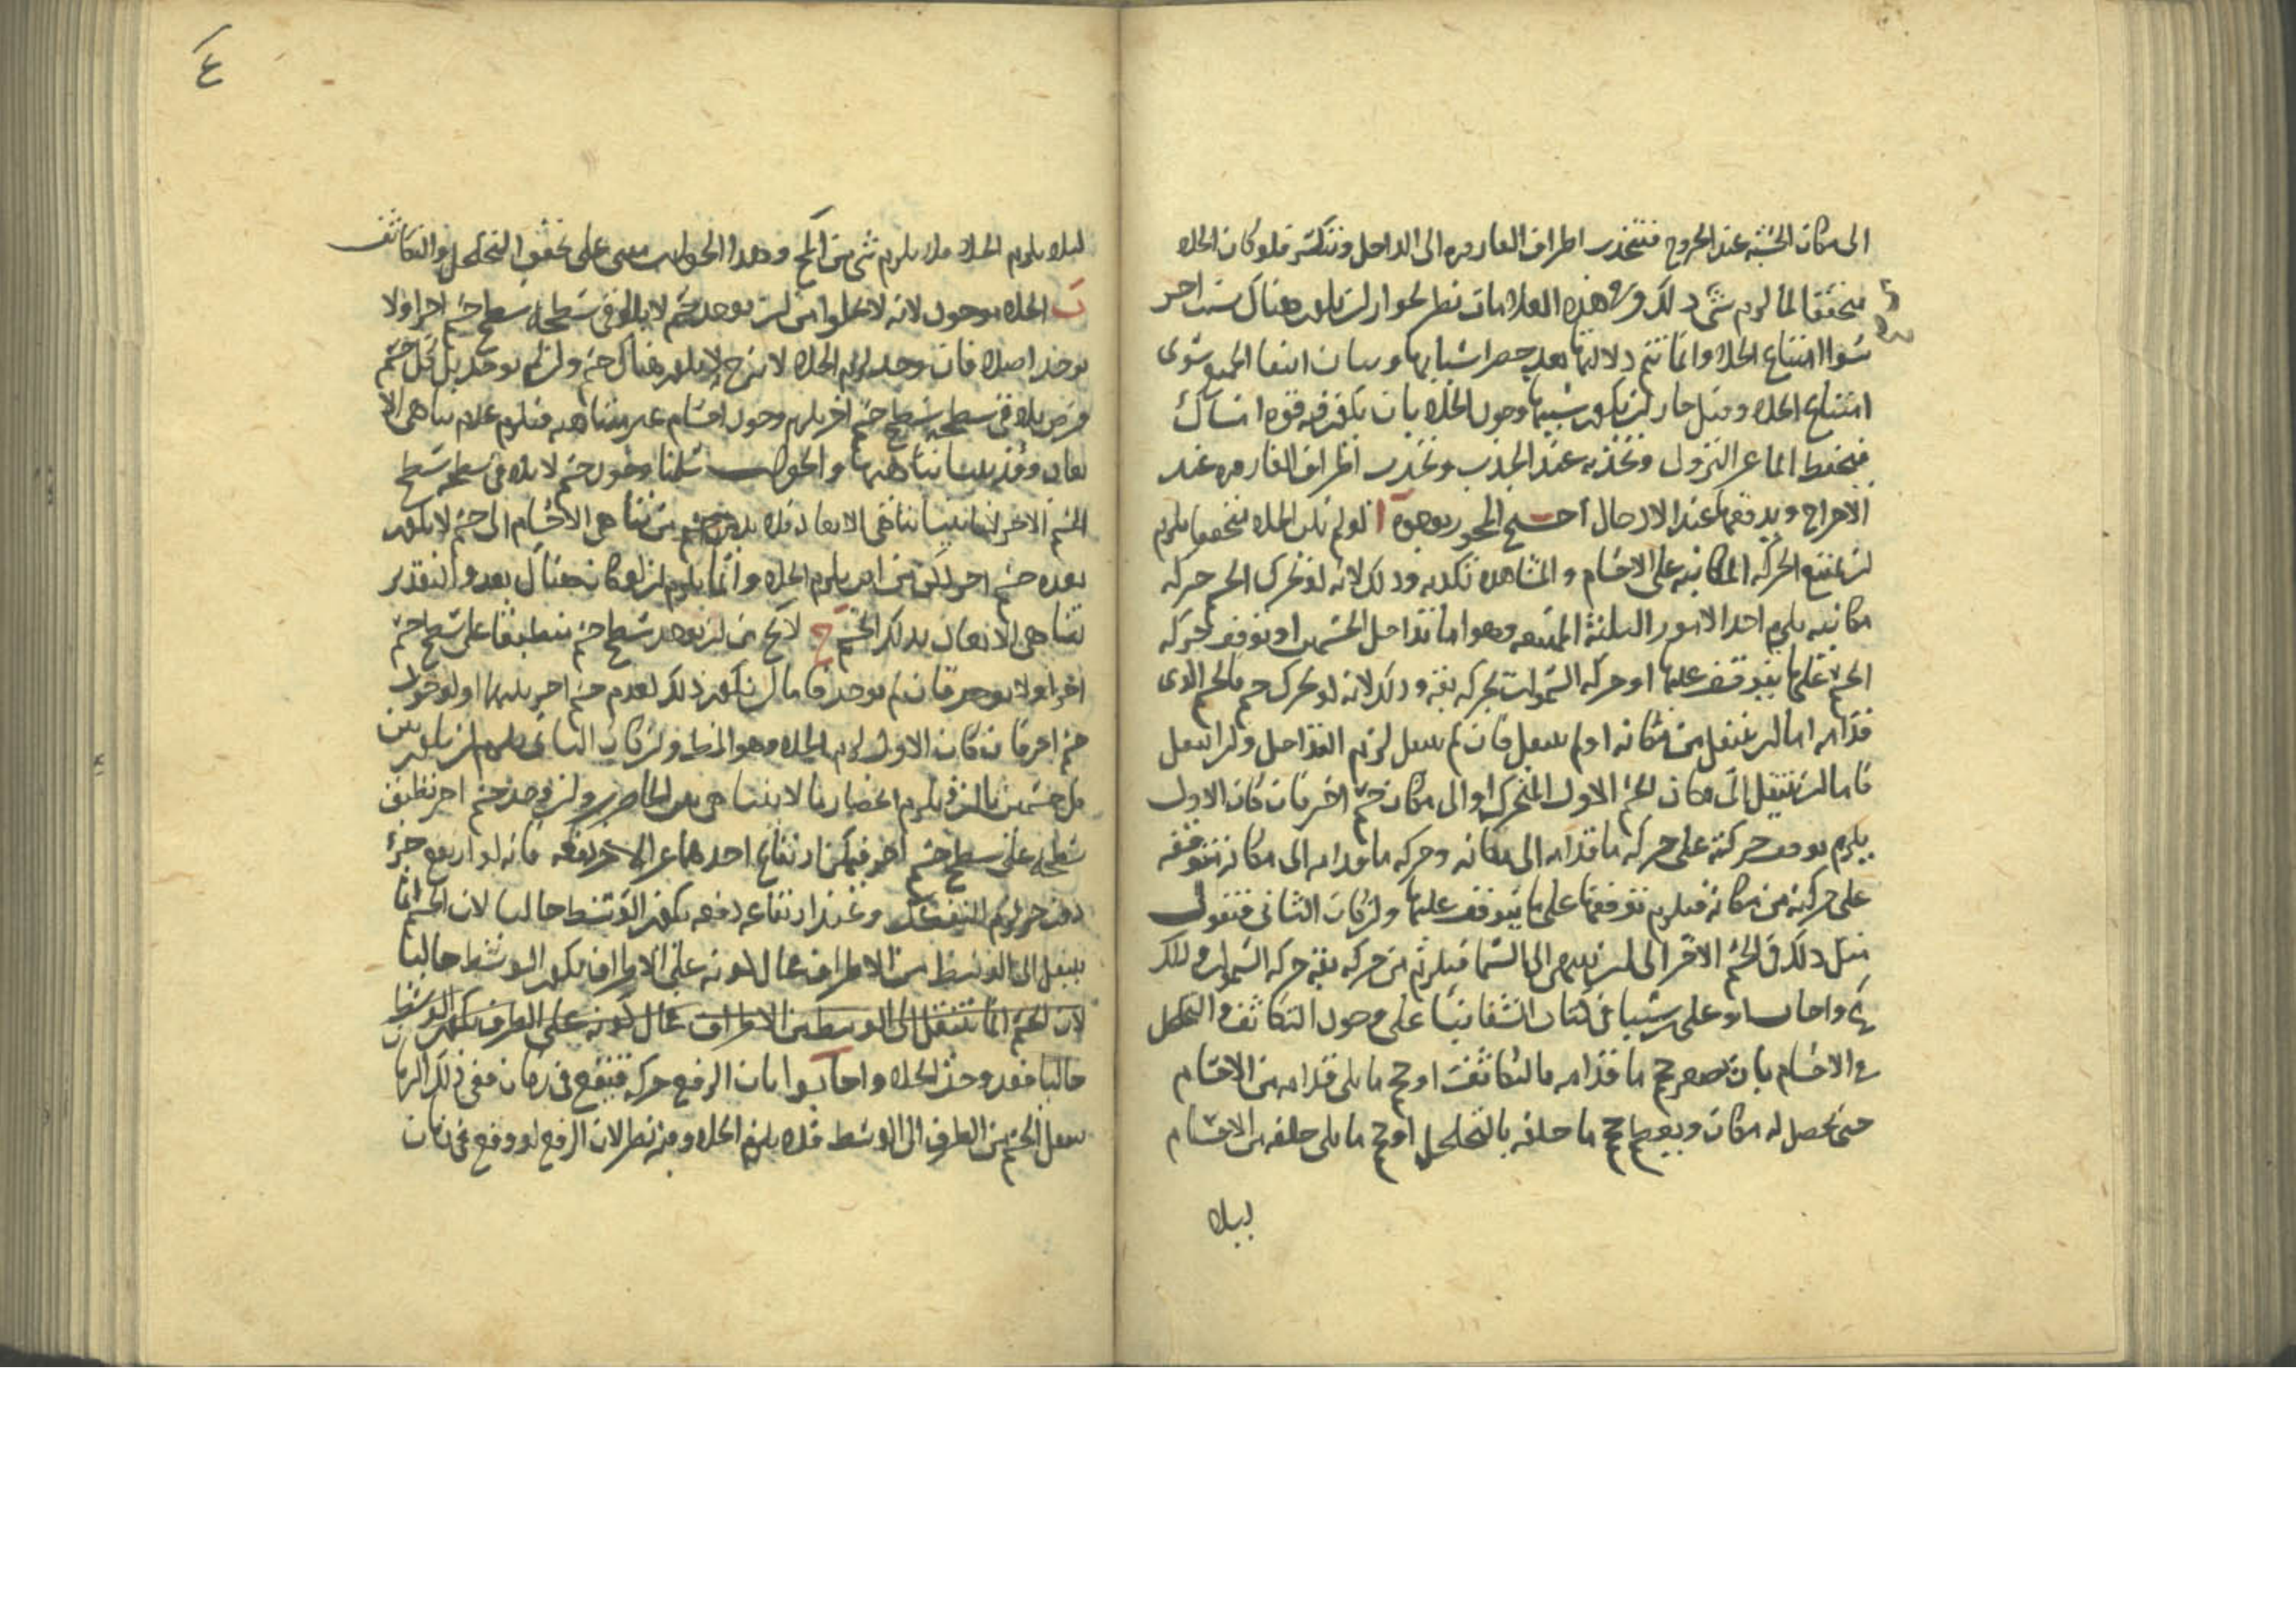 الى مكان الخشبة عند الخروج فتنجذب اطراف القاروره الى الداخل وتنكسر فلو كان الخلاء
متحققا لما لزم شى ذلك وفى هذه العلامات نظر لجواز ان يكون هناك سبب اخر
سوا امتناع الخلاء وانما تتم دلالتها بعد حصر اسبابها وبيان انتفا الجميع سوى
امتناع الخلاء وقيل جاز ان يكون سببها وجود الخلاء بان يكون فيه قوه امساك
فيحفظ الما عن النزول وتجذبه عند الجذب وتجذب اطراف القاروره عند
الاخراج ويدفعها عند الادخال احتج المجوز بوجوه ا لو لم يكن الخلاء متحققا يلزم
ان تمتنع الحركه المكانيه على الاجسام والمشاهده تكذبه وذلك لانه لو تحرك الجسم حركه
مكانيه يلزم احد الامور الثلثة الممتنعه وهو اما تداخل الجسمين او توقف حركه
الجسم على ما يتوقف عليها او حركه السموات بحركه بقه وذلك لانه لو تحرك جسم فالجسم الذى
قدامه اما ان ينتقل من مكانه او لم ينتقل فان لم ينتقل لزم التداخل وان انتقل
فاما ان ينتقل الى مكان الجسم الاول المتحرك او الى مكان جسم اخر فان كان الاول
يلزم توقف حركته على حركه ما قدامه الى مكانه وحركه ما قدامه الى مكانه متوقفه
على حركته من مكانه فيلزم توقفها على ما يتوقف عليها وان كان الثانى فنقول
مثل ذلك فى الجسم الاخر الى ان ينتهى الى السما فيلزم من حركه بقه حركه السموات وذلك
مح واجاب ابو على بن سينا فى كتاب الشفا بنا على وجود التكاثف والتخلخل
فى الاجسام بان يصغر حجم ما قدامه بالتكاثف او حجم ما يلى قدامه من الاجسام
حتى يحصل له مكان ويعظم حجم ما خلفه بالتخلخل او حجم ما يلى خلفه من الاجسام
ليلا
ع
ليلا يلزم الخلاء فلا يلزم شى من المح وهذا الجواب مبنى على تحقق التخلخل والتكاثف
ب الخلاء موجود لانه لا يخلوا من ان يوجد جسم لا يلاقى سطحه سطح جسم اخر او لا
يوجد اصلا فان وجد لزم الخلاء لانه ح لا يكون هناك جسم وان لم يوجد بل كل جسم
فرض يلاقى سطحه سطح جسم اخر يلزم وجود اجسام غير متناهيه فيلزم عدم تناهى الا
بعاد وقد بينا تناهيها والجواب سلمنا وجود جسم لا يلاقى سطحه سطح
الجسم الاخر لانا بينا تناهى الابعاد فلا بد من تناهى الاجسام الى جسم لا يكون
بعده جسم اخر لكن من اين يلزم الخلاء وانما يلزم ان لو كان هناك بعد والتقدير
تناهى الابعاد بذلك الجسم ج لا يخ من ان يوجد سطح جسم منطبقا على سطح جسم
اخر او لا يوجد فان لم يوجد فاما ان يكون ذلك لعدم جسم اخر بينهما او لوجود
جسم اخر فان كان الاول لزم الخلاء وهو المط وان كان الثانى يلزم ان يكون بين
كل جسمين ثالث فيلزم انحصار ما لا يتناهى بين الحاصرين وان وجد جسم اخر تطبيق
سطحه على سطح جسم اخر فيمكن ارتفاع احدهما عن الاخر دفعه فانه لو ارتفع جزء
دون جزء لزم التفكك وعند ارتفاعه دفعه يكون الوسط خاليا لان الجسم انما
ينتقل الى الوسط من الاطراف فحال كونه على الاطراف يكون الوسط خاليا
لان الجسم انما ينتقل الى الوسط من الاطراف فحال كونه على الطرف يكون الوسط
خاليا فقد وجد الخلاء واجابوا بان الرفع حركه فيقع فى زمان ففى ذلك الزمان
ينتقل الجسم من الطرف الى الوسط فلا يلزم الخلاء وفيه نظر لان الرفع لو وقع فى زمان